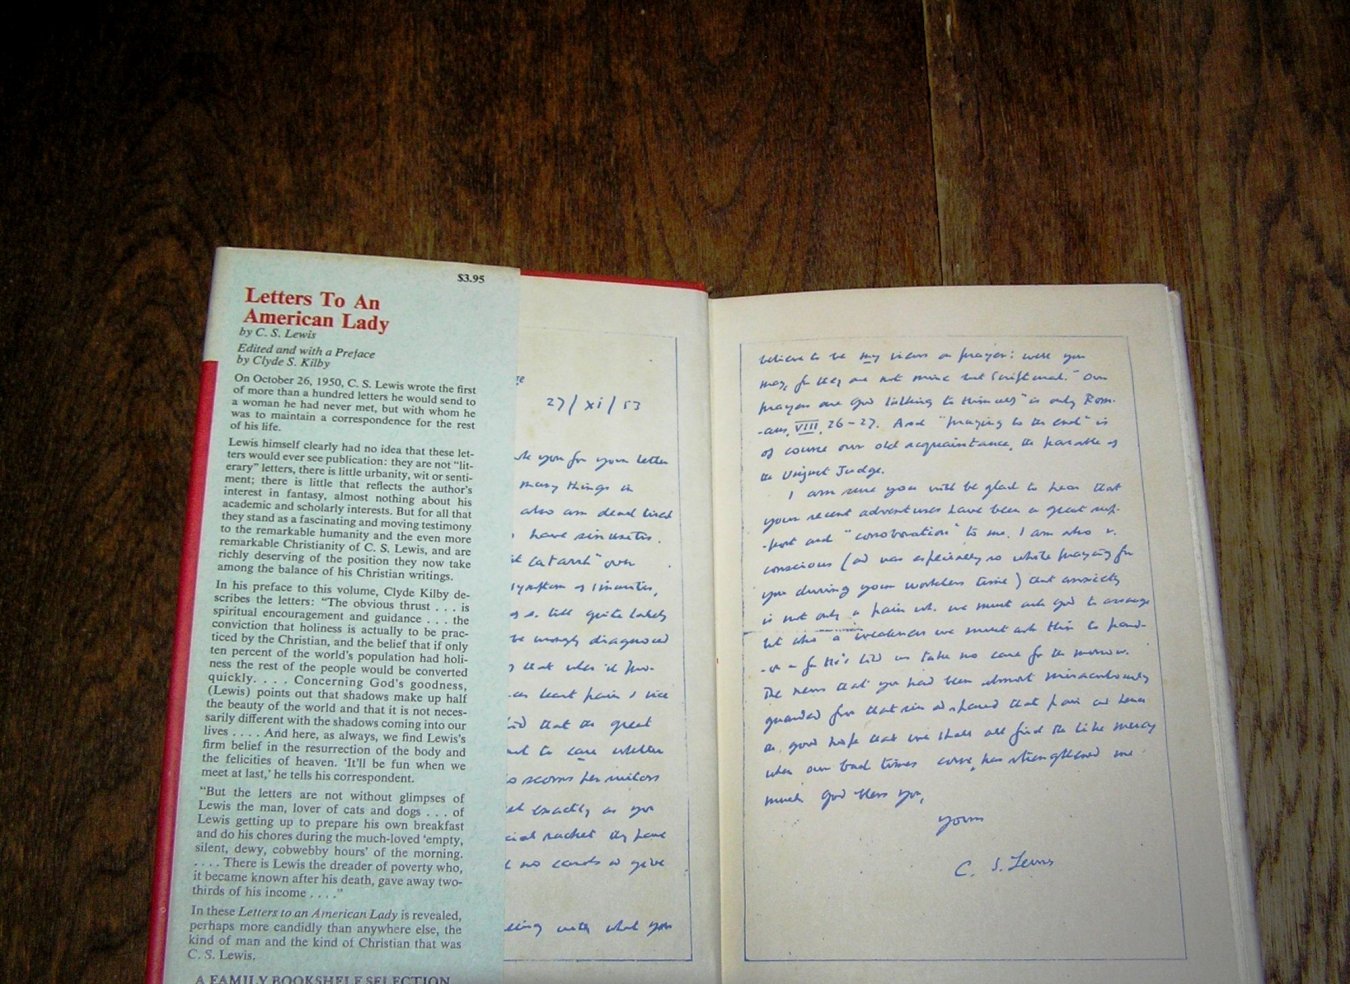 $3.95
Letters To An
American Lady
by C. S. Lewis
Edited and with a Preface
by Clyde S. Kilby
On October 26, 1950, C. S. Lewis wrote the first
of more than a hundred letters he would send to
a woman he had never met, but with whom he
was to maintain a correspondence for the rest
of his life.
Lewis himself clearly had no idea that these let-
ters would ever see publication: they are not "lit-
erary" letters, there is little urbanity, wit or senti-
ment; there is little that reflects the author's
interest in fantasy, almost nothing about his
academic and scholarly interests. But for all that
they stand as a fascinating and moving testimony
to the remarkable humanity and the even more
remarkable Christianity of C. S. Lewis, and are
richly deserving of the position they now take
among the balance of his Christian writings.
In his preface to this volume, Clyde Kilby de-
scribes the letters: "The obvious thrust . . . is
spiritual encouragement and guidance . . . the
conviction that holiness is actually to be prac-
ticed by the Christian, and the belief that if only
ten percent of the world's population had holi-
ness the rest of the people would be converted
quickly. . . . Concerning God's goodness,
(Lewis) points out that shadows make up half
the beauty of the world and that it is not neces-
sarily different with the shadows coming into our
lives . . . . And here, as always, we find Lewis's
firm belief in the resurrection of the body and
the felicities of heaven. 'It'll be fun when we
meet at last,' he tells his correspondent.
"But the letters are not without glimpses of
Lewis the man, lover of cats and dogs . . . of
Lewis getting up to prepare his own breakfast
and do his chores during the much-loved 'empty,
silent, dewy, cobwebby hours' of the morning.
. . . . There is Lewis the dreader of poverty who,
it became known after his death, gave away two-
thirds of his income . . . ."
In these Letters to an American Lady is revealed,
perhaps more candidly than anywhere else, the
kind of man and the kind of Christian that was
C. S. Lewis.
A FAMILY BOOKSHELF SELECTION
27/xi/53
you for your letter
many things in
also am dead tired
have sinusitis.
catarrh" over
symptom of sinusitis,
till quite lately
be wrongly diagnosed
that when it
least pain & vice
that the great
not to care whether
scorns her visitors
exactly as you
racket they have
no cards to give
with what you
believe to be my views on prayer: well you
may, for they are not mine but Scriptural. "Our
prayers are God talking to Himself" is only Rom-
-ans, VIII, 26-27. And "praying to the end" is
of course our old acquaintance, the parable of
the Unjust Judge.
I am sure you will be glad to hear that
your recent adventures have been a great sup-
-port and "corroboration" to me. I am also v.
conscious (and was especially so while praying for
you during your workless time) that anxiety
is not only a pain wh. we must ask God to assuage
but also a weakness we must ask Him to pard-
-on - for He's told us take no care for the morrow.
The news that you had been almost miraculously
guarded from that sin and spared that pain and hence
the good hope that we shall all find the like mercy
when our bad times come, has strengthened me
much. God bless you,
yours
C. S. Lewis